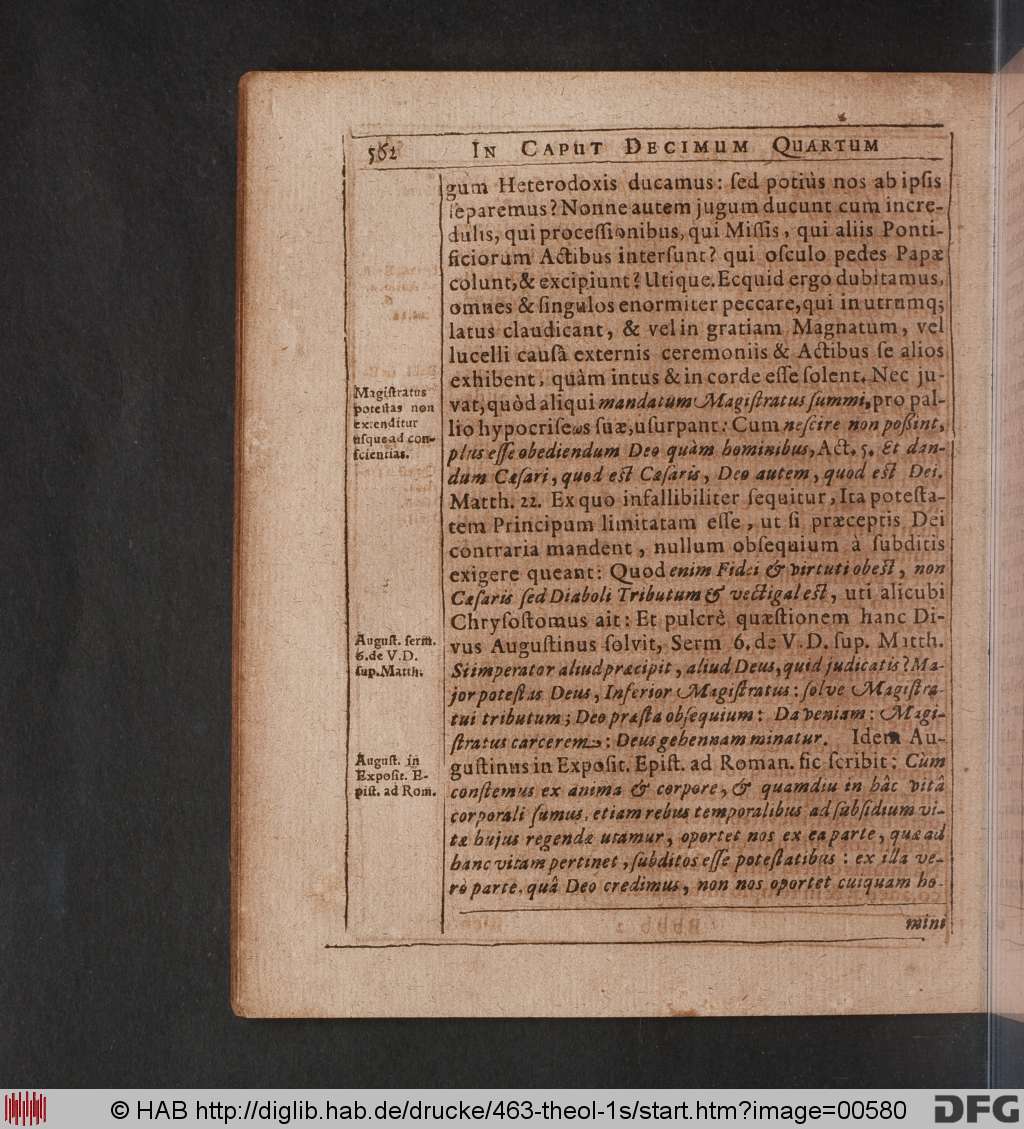 562 IN CAPUT DECIMUM QUARTUM
gum Heterodoxis ducamus: ſed potiùs nos ab ipſis
ſeparemus? Nonne autem jugum ducunt cum incre-
dulis, qui proceſſionibus, qui Miſſis, qui aliis Ponti-
ficiorum Actibus interſunt? qui oſculo pedes Papæ
colunt, & excipiunt? Utique. Ecquid ergo dubitamus,
omnes & ſingulos enormiter peccare, qui in utrumq;
latus claudicant, & vel in gratiam Magnatum, vel
lucelli cauſâ externis ceremoniis & Actibus ſe alios
exhibent, quàm intus & in corde eſſe ſolent. Nec ju-
vat, quòd aliqui mandatum Magiſtratus ſummi, pro pal-
lio hypocriſeωs ſuæ, uſurpant: Cum neſcire non poſſint,
plus eſſe obediendum Deo quàm hominibus, Act. 5. Et dan-
dum Cæſari, quod eſt Cæſaris, Deo autem, quod eſt Dei.
Matth. 22. Ex quo infallibiliter ſequitur, Ita poteſta-
tem Principum limitatam eſſe, ut ſi præceptis Dei
contraria mandent, nullum obſequium à ſubditis
exigere queant: Quod enim Fidei & virtuti obeſt, non
Cæſaris ſed Diaboli Tributum & vectigal eſt, uti alicubi
Chryſoſtomus ait: Et pulcrè quæſtionem hanc Di-
vus Auguſtinus ſolvit, Serm 6. de V. D. ſup. Matth.
Si imperator aliud præcipit, aliud Deus, quid judicatis? Ma-
jor poteſtas Deus, Inferior Magiſtratus: ſolve Magiſtra-
tui tributum; Deo præſta obſequium: Da veniam: Magi-
ſtratus carcerem: Deus gehennam minatur. Idem Au-
guſtinus in Expoſit. Epiſt. ad Roman. ſic ſcribit: Cùm
conſtemus ex anima & corpore, & quamdiu in hâc vitâ
corporali ſumus, etiam rebus temporalibus ad ſubſidium vi-
tæ hujus regendæ utamur, oportet nos ex ea parte, quæ ad
hanc vitam pertinet, ſubditos eſſe poteſtatibus: ex illa ve-
rò parte, quâ Deo credimus, non nos oportet cuiquam ho-
mini
Magiſtratus
poteſtas non
extenditur
uſque ad con-
ſcientias.
Auguſt. ſerm.
6. de V. D.
ſup. Matth.
Auguſt. in
Expoſit. E-
piſt. ad Rom.
© HAB http://diglib.hab.de/drucke/463-theol-1s/start.htm?image=00580
DFG